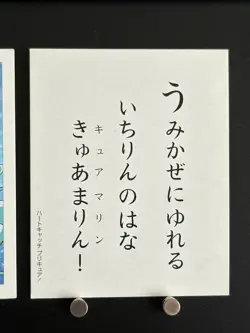 うみかぜにゆれる
いちりんのはな
きゅあまりん！
キュアマリン
ハートキャッチプリキュア！